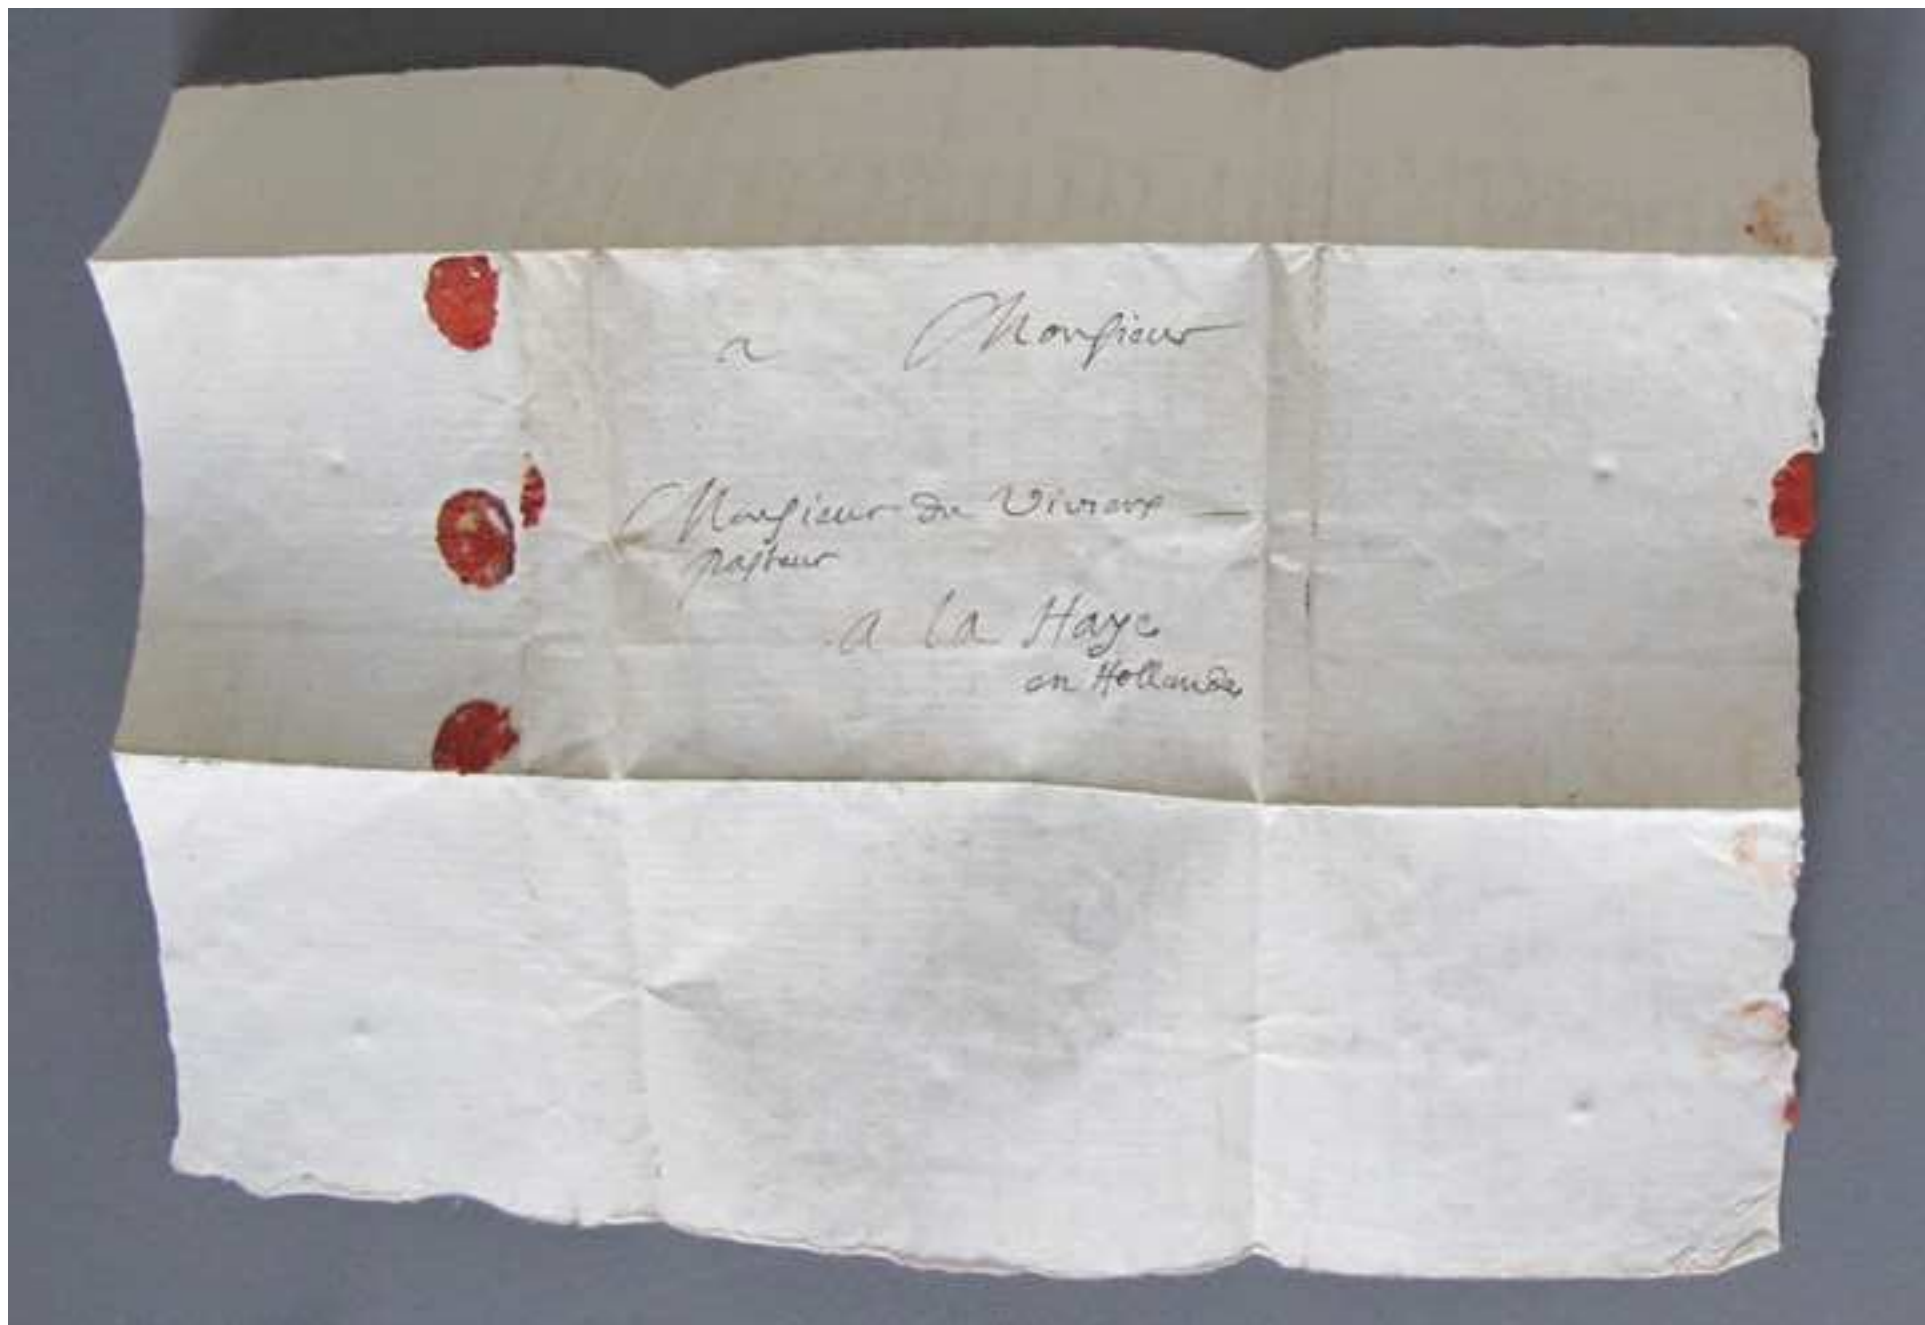 a Monsieur
Monsieur du Vivraux
pasteur
a la Haye
en Hollande